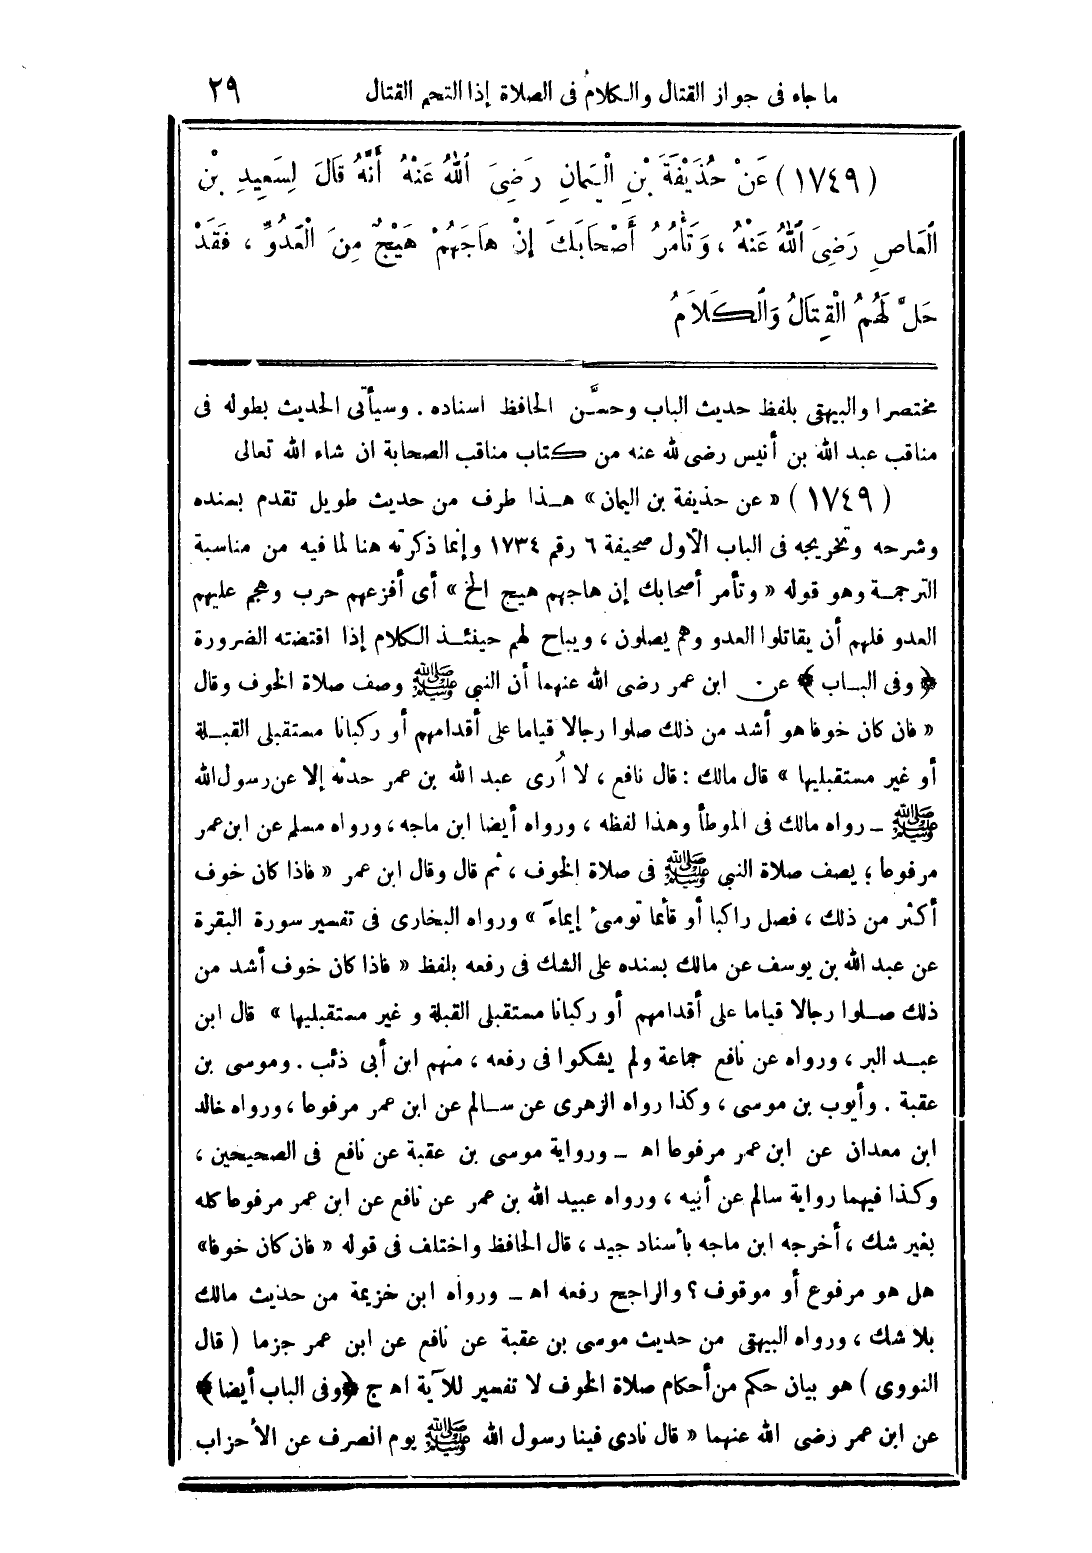 ما جاء فى جواز القتال والكلام فى الصلاة إذا التحم القتال ٢٩
( ١٧٤٩ ) عَنْ حُذَيْفَةَ بْنِ الْيَمانِ رَضِىَ اللهُ عَنْهُ أَنَّهُ قَالَ لِسَعِيدِ بْنِ
الْعَاصِ رَضِىَ اللهُ عَنْهُ ، وَتَأْمُرُ أَصْحَابَكَ إِنْ هَاجَهُمْ هَيْجٌ مِنَ الْعَدُوِّ ، فَقَدْ
حَلَّ لَهُمُ الْقِتَالُ وَالْكَلَامُ
مختصرا والبيهقى بلفظ حديث الباب وحسَّن الحافظ اسناده . وسيأتى الحديث بطوله فى
مناقب عبد الله بن أنيس رضى لله عنه من كتاب مناقب الصحابة ان شاء الله تعالى
( ١٧٤٩ ) « عن حذيفة بن اليمان » هـذا طرف من حديث طويل تقدم بسنده
وشرحه وتخريجه فى الباب الأول صحيفة ٦ رقم ١٧٣٤ وإنما ذكرته هنا لما فيه من مناسبة
الترجمـة وهو قوله « وتأمر أصحابك إن هاجهم هيج الخ » أى أفزعهم حرب وهجم عليهم
العدو فلهم أن يقاتلوا العدو وهم يصلون ، ويباح لهم حينئـذ الكلام إذا اقتضته الضرورة
﴿ وفى البـاب ﴾ عن ابن عمر رضى الله عنهما أن النبي ﷺ وصف صلاة الخوف وقال
« فان كان خوفا هو أشد من ذلك صلوا رجالا قياما على أقدامهم أو ركبانا مستقبلى القبـلة
أو غير مستقبليها » قال مالك : قال نافع ، لا أُرى عبد الله بن عمر حدثه إلا عن رسول الله
ﷺ ــ رواه مالك فى الموطأ وهذا لفظه ، ورواه أيضا ابن ماجه ، ورواه مسلم عن ابن عمر
مرفوعا ؛ يصف صلاة النبي ﷺ فى صلاة الخوف ، ثم قال وقال ابن عمر « فاذا كان خوف
أكثر من ذلك ، فصل راكبا أو قائما تومىء إيماء » ورواه البخارى فى تفسير سورة البقرة
عن عبد الله بن يوسف عن مالك بسنده على الشك فى رفعه بلفظ « فاذا كان خوف أشد من
ذلك صـلوا رجالا قياما على أقدامهم أو ركبانا مستقبلى القبلة و غير مستقبليها » قال ابن
عبـد البر ، ورواه عن نافع جماعة ولم يشكوا فى رفعه ، منهم ابن أبى ذئب . وموسى بن
عقبة . وأيوب بن موسى ، وكذا رواه الزهرى عن سـالم عن ابن عمر مرفوعا ، ورواه خالد
ابن معدان عن ابن عمر مرفوعا اهـ ــ ورواية موسى بن عقبة عن نافع فى الصحيحين ،
وكـذا فيهما رواية سالم عن أبيه ، ورواه عبيد الله بن عمر عن نافع عن ابن عمر مرفوعا كله
بغير شك ، أخرجه ابن ماجه بأسناد جيد ، قال الحافظ واختلف فى قوله « فان كان خوفا »
هل هو مرفوع أو موقوف ؟ والراجح رفعه اهـ ــ ورواه ابن خزيمة من حديث مالك
بلا شك ، ورواه البيهقى من حديث موسى بن عقبة عن نافع عن ابن عمر جزما ( قال
النووى ) هو بيان حكم من أحكام صلاة الخوف لا تفسير للآية اهـ ج ﴿ وفى الباب أيضا ﴾
عن ابن عمر رضى الله عنهما « قال نادى فينا رسول الله ﷺ يوم انصرف عن الأحزاب